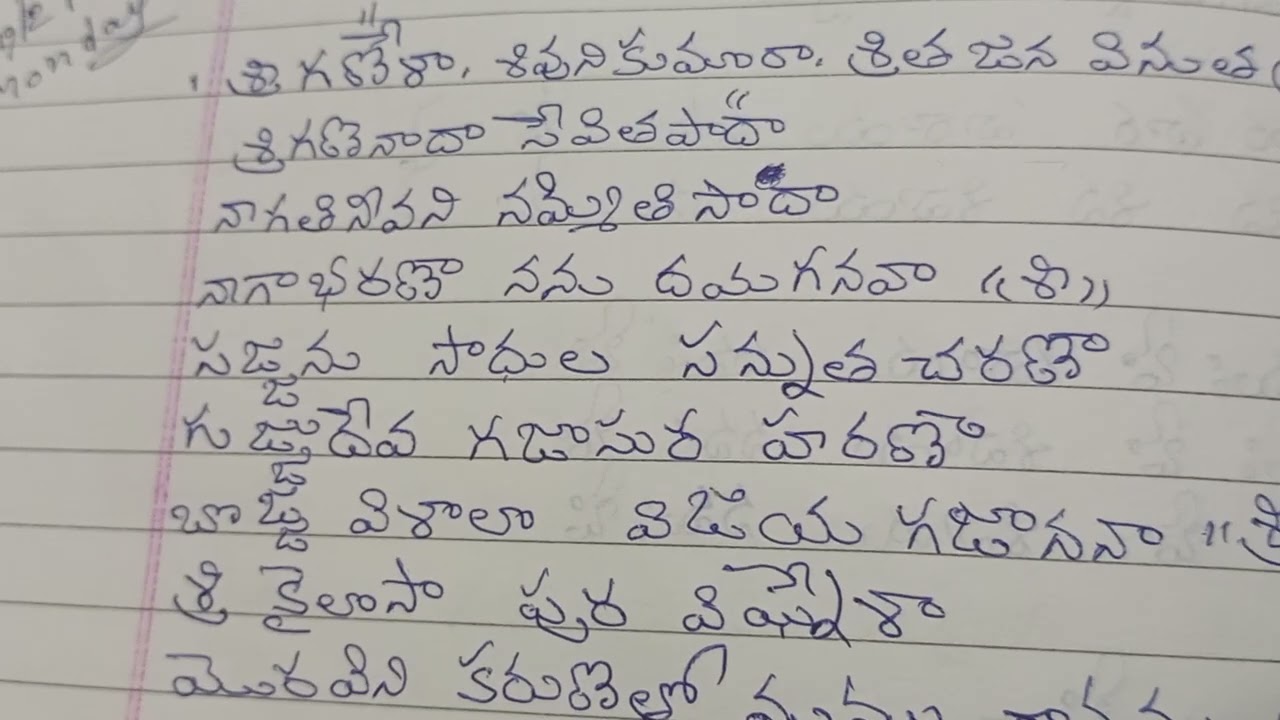 Monday
శ్రీ గణేశా, శివుని కుమారా, శ్రిత జన వినుత
శ్రీగణనాదా సేవితపాదా
నాగతినీవని నమ్మితి సాదా
నాగాభరణా నను దయగనవా "శ్రీ"
సజ్జను సాధుల సన్నుత చరణా
గుజ్జుదేవ గజాసుర హరణా
బొజ్జ విశాలా విజయ గజాననా "శ్రీ
శ్రీ కైలాసా పుర విఘ్నేశా
మొరవిని కరుణతో